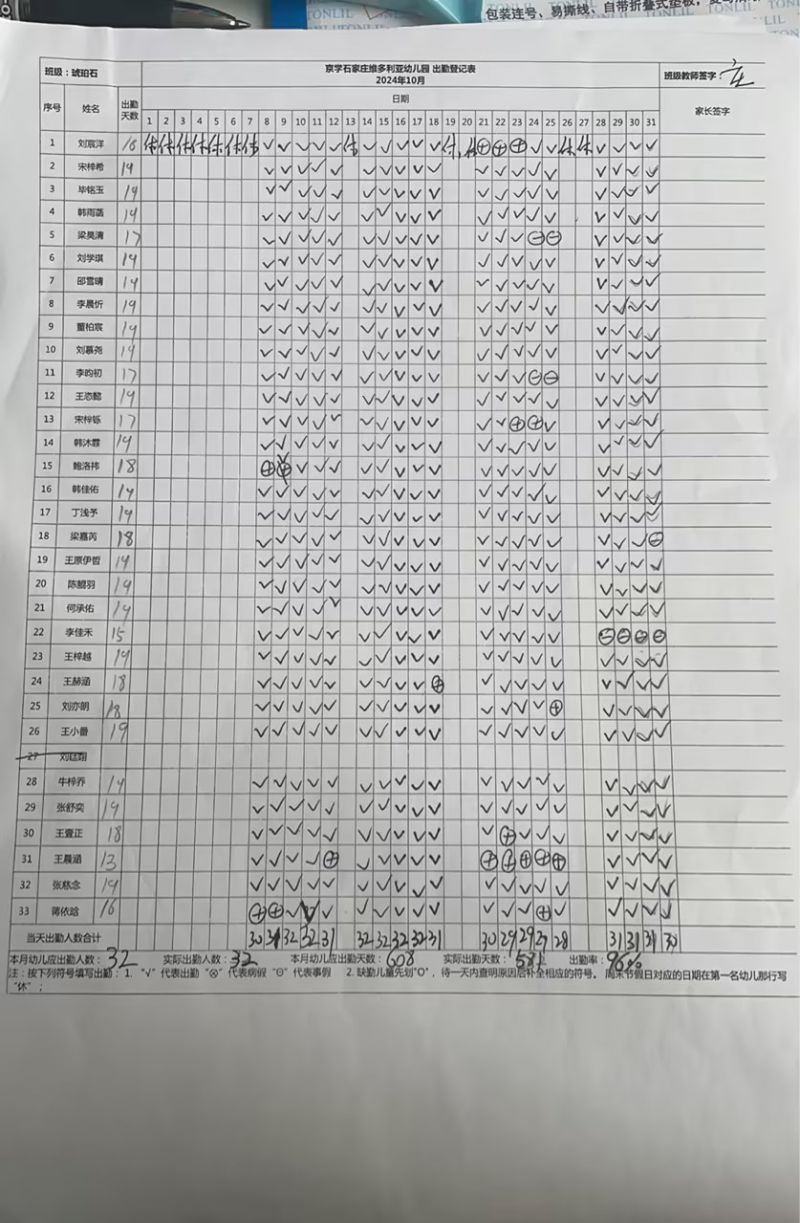 TONLIL
包装连号、易撕线、自带折叠式垫板，
班级：琥珀石 京学石家庄维多利亚幼儿园 出勤登记表 班级教师签字：
2024年10月
序号 姓名 出勤天数 日期 家长签字
1 2 3 4 5 6 7 8 9 10 11 12 13 14 15 16 17 18 19 20 21 22 23 24 25 26 27 28 29 30 31
1 刘宸洋 16 休 休 休 休 休 休 休 √ √ √ √ √ 休 √ √ √ √ √ 休 休 ⊕ ⊕ ⊕ √ √ 休 休 √ √ √ √
2 宋梓希 19 √ √ √ √ √ √ √ √ √ √ √ √ √ √ √ √ √ √ √
3 毕铭玉 19 √ √ √ √ √ √ √ √ √ √ √ √ √ √ √ √ √ √ √
4 韩雨菡 19 √ √ √ √ √ √ √ √ √ √ √ √ √ √ √ √ √ √ √
5 梁昊清 17 √ √ √ √ √ √ √ √ √ √ √ √ √ ⊖ ⊖ √ √ √ √
6 刘学琪 19 √ √ √ √ √ √ √ √ √ √ √ √ √ √ √ √ √ √ √
7 邵雪晴 19 √ √ √ √ √ √ √ √ √ √ √ √ √ √ √ √ √ √ √
8 李晨忻 19 √ √ √ √ √ √ √ √ √ √ √ √ √ √ √ √ √ √ √
9 董柏宸 19 √ √ √ √ √ √ √ √ √ √ √ √ √ √ √ √ √ √ √
10 刘慕尧 19 √ √ √ √ √ √ √ √ √ √ √ √ √ √ √ √ √ √ √
11 李昀初 17 √ √ √ √ √ √ √ √ √ √ √ √ √ ⊖ ⊖ √ √ √ √
12 王忞懿 19 √ √ √ √ √ √ √ √ √ √ √ √ √ √ √ √ √ √ √
13 宋梓铄 17 √ √ √ √ √ √ √ √ √ √ √ √ ⊕ ⊕ √ √ √ √ √
14 韩沐霖 19 √ √ √ √ √ √ √ √ √ √ √ √ √ √ √ √ √ √ √
15 鲍洛祎 18 ⊕ √ √ √ √ √ √ √ √ √ √ √ √ √ √ √ √ √
16 韩佳佑 19 √ √ √ √ √ √ √ √ √ √ √ √ √ √ √ √ √ √ √
17 丁浅予 19 √ √ √ √ √ √ √ √ √ √ √ √ √ √ √ √ √ √ √
18 梁嘉芮 18 √ √ √ √ √ √ √ √ √ √ √ √ √ √ √ √ √ √ ⊖
19 王原伊哲 19 √ √ √ √ √ √ √ √ √ √ √ √ √ √ √ √ √ √ √
20 陈鹏羽 19 √ √ √ √ √ √ √ √ √ √ √ √ √ √ √ √ √ √ √
21 何承佑 19 √ √ √ √ √ √ √ √ √ √ √ √ √ √ √ √ √ √ √
22 李佳禾 15 √ √ √ √ √ √ √ √ √ √ √ √ √ √ √ ⊖ ⊖ ⊖ ⊖
23 王梓越 19 √ √ √ √ √ √ √ √ √ √ √ √ √ √ √ √ √ √ √
24 王赫涵 18 √ √ √ √ √ √ √ √ √ ⊕ √ √ √ √ √ √ √ √ √
25 刘亦朗 18 √ √ √ √ √ √ √ √ √ √ √ √ √ √ ⊕ √ √ √ √
26 王小番 19 √ √ √ √ √ √ √ √ √ √ √ √ √ √ √ √ √ √ √
27
28 牛梓乔 19 √ √ √ √ √ √ √ √ √ √ √ √ √ √ √ √ √ √ √
29 张舒奕 19 √ √ √ √ √ √ √ √ √ √ √ √ √ √ √ √ √ √ √
30 王壹正 18 √ √ √ √ √ √ √ √ √ √ √ ⊕ √ √ √ √ √ √ √
31 王晨涵 13 √ √ √ √ ⊕ √ √ √ √ √ ⊕ ⊕ ⊕ ⊕ ⊕ √ √ √ √
32 张慈念 19 √ √ √ √ √ √ √ √ √ √ √ √ √ √ √ √ √ √ √
33 蒋依晗 16 ⊕ ⊕ √ √ √ √ √ √ √ √ √ √ √ ⊕ √ √ √ √ √
当天出勤人数合计 30 31 32 32 31 32 32 32 32 31 30 29 29 27 28 31 31 31 30
本月幼儿应出勤人数：32 实际出勤人数：32 本月幼儿应出勤天数：608 实际出勤天数：581 出勤率：96%
注：按下列符号填写出勤：1. "√"代表出勤 "⊗"代表病假 "⊖"代表事假 2. 缺勤儿童先划"O"，待一天内查明原因后补全相应的符号。周末节假日对应的日期在第一名幼儿那行写
"休"；